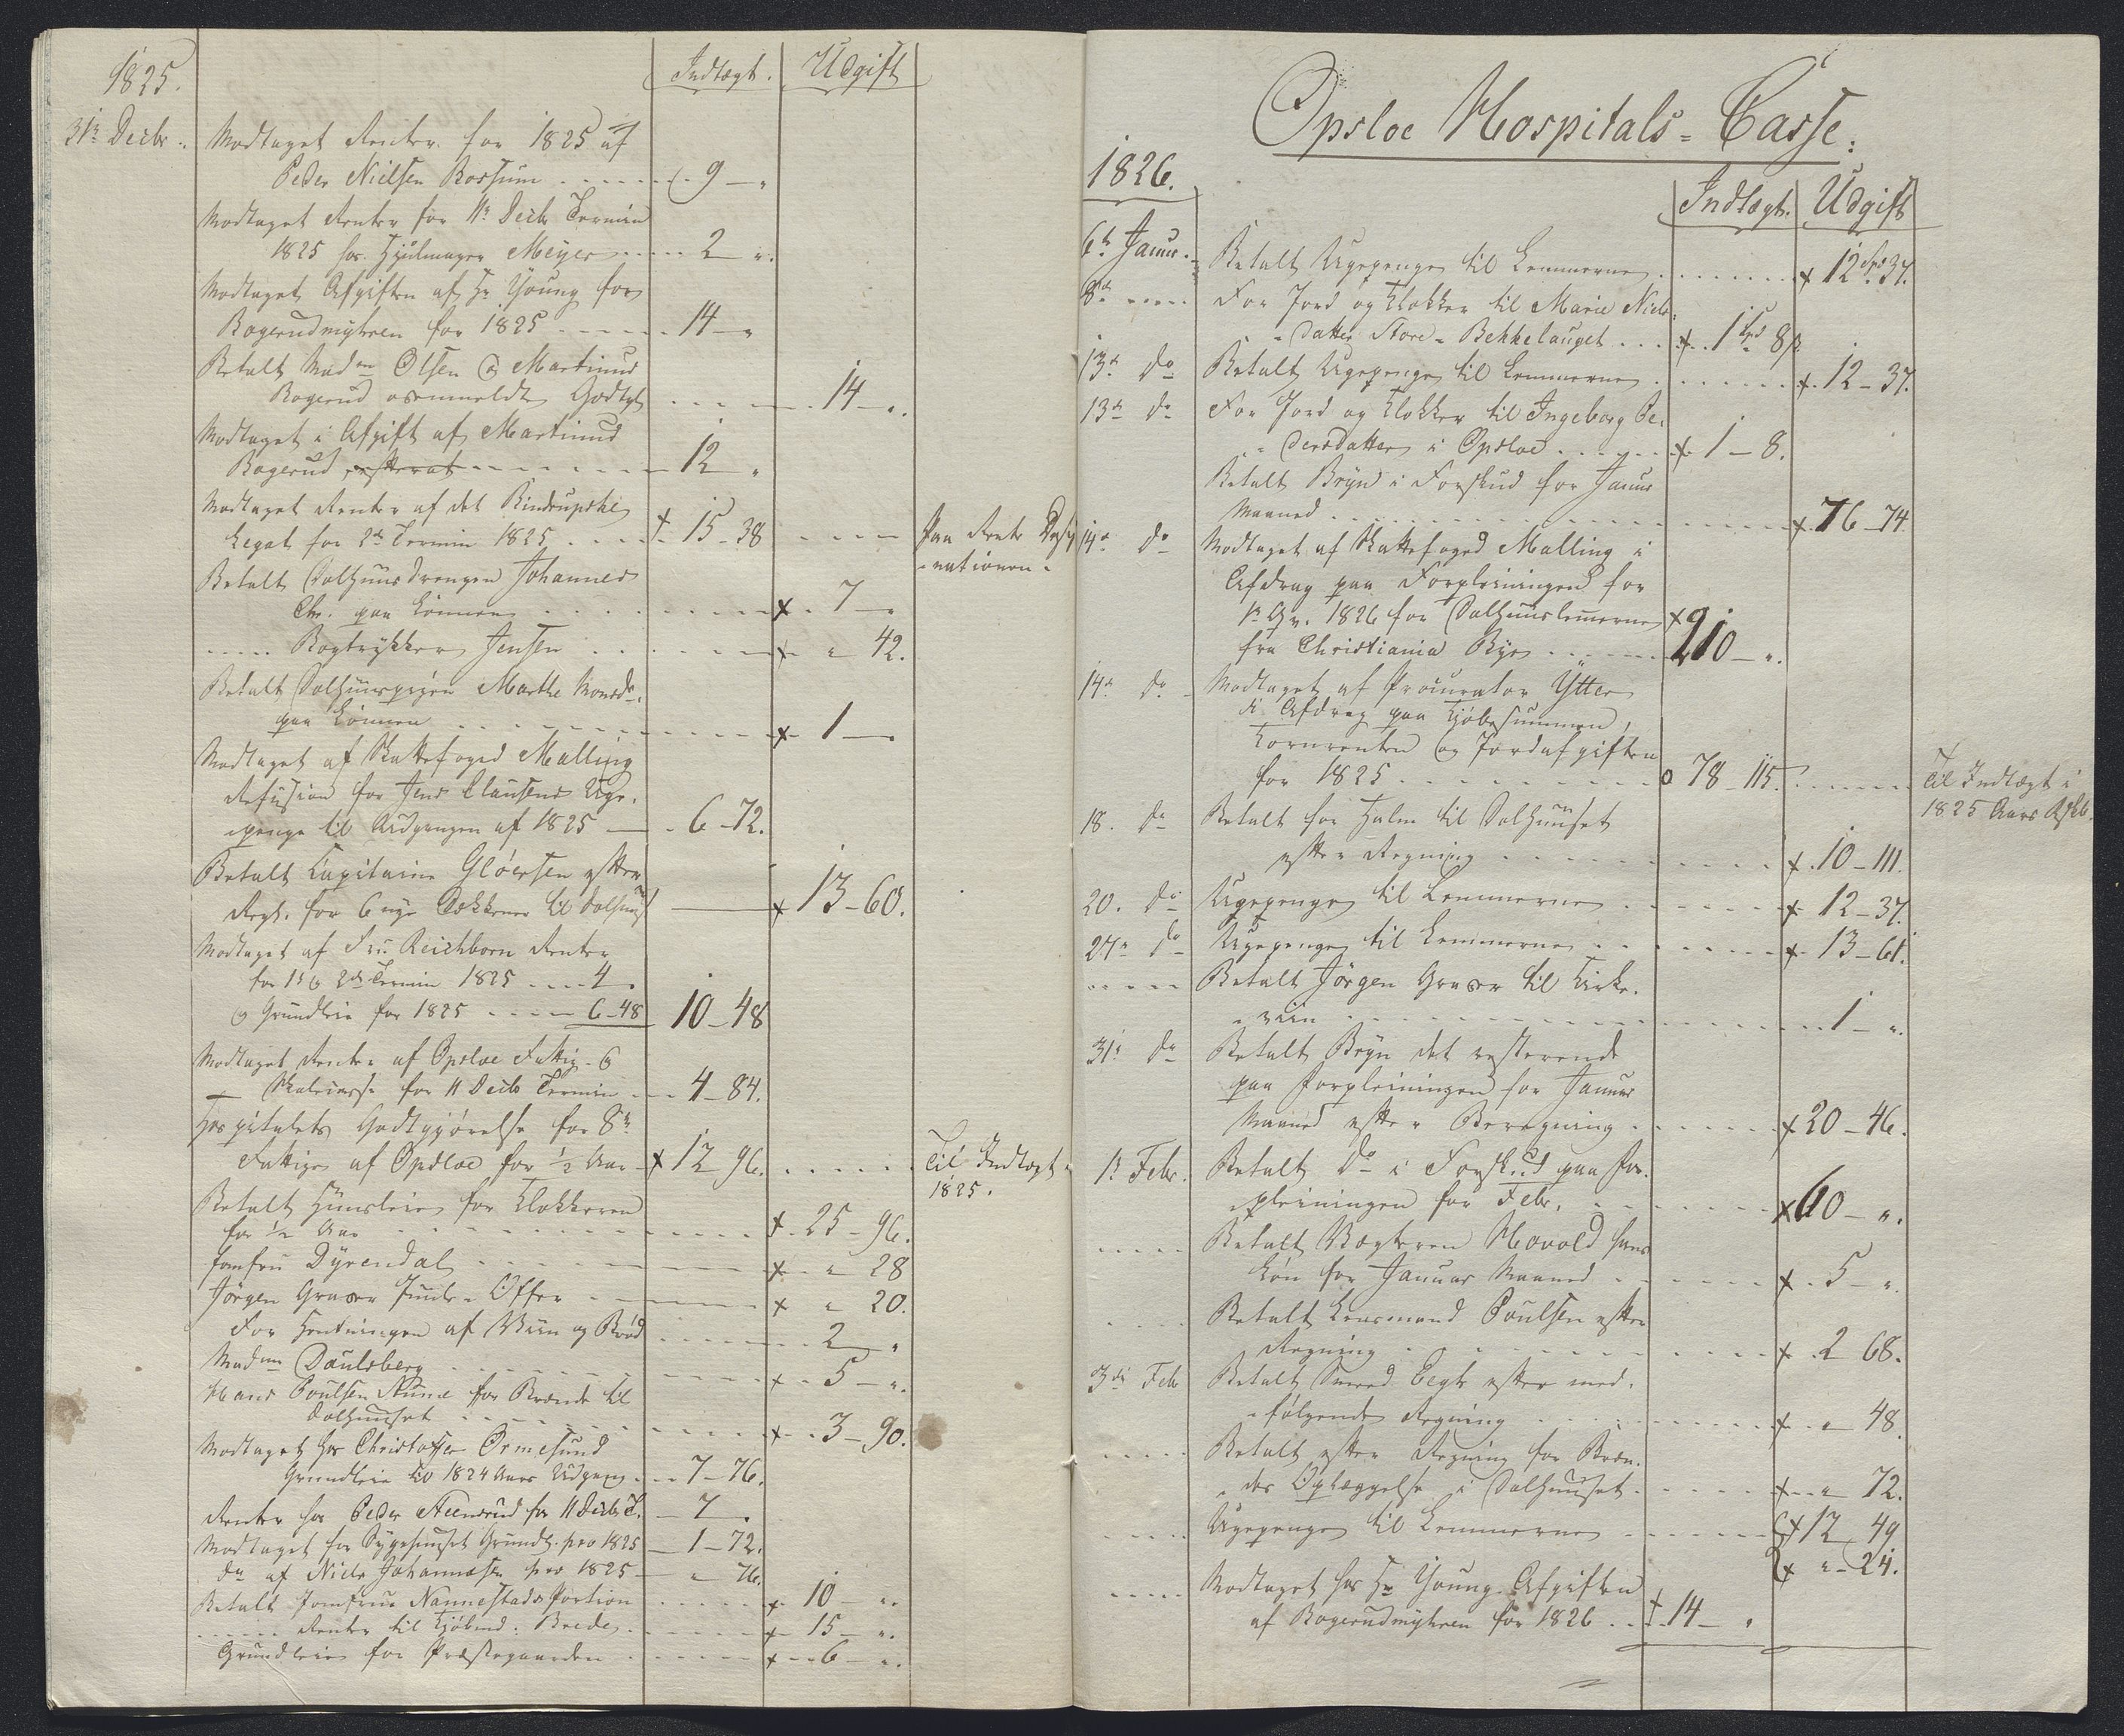 1825.
Indtægt. Udgift
31te Decbr. Modtaget Renter for 1825 af
Peder Nielsen Bossum 9 — "
Modtaget Renter for 11te Decbr Termin
1825 hos Hjulmager Meyer 2 "
Modtaget Afgiften af Hr Young for
Bogerudmyhren for 1825 14 — "
Betalt Madme Olsen & Martinus
Bogerud Godtgl 14 — "
Modtaget i Afgift af Martinus
Bogerud 12 "
Modtaget Renter af det Rindrupske
Legat for 2den Termin 1825 15 - 38 paa Rente Desig
= nationen =
Betalt Dolhuusdrengen Johannes
Chr. paa Lønnen x 7 — "
Bogtrykker Jensen x " 42.
Betalt Dolhuuspigen Marthe Monsdr.
paa Lønnen x 1 —
Modtaget af Skattefoged Malling
Refusion for Jens Clausens Uge=
penge til Udgangen af 1825 — 6 - 72.
Betalt Capitaine Gløersen efter
Regn. for 6 nye Dækkener til Dolhuus x 13 - 60.
Modtaget af Fru Reichborn Renter
for 1te & 2den Termin 1825 4 "
& Grundleie for 1825 6 - 48 10 - 48
Modtaget Renter af Opsloe Fattig- &
Skolecasse for 11 Decbr Termin 4 - 84.
Hospitalets Godtgjørelse for 8te
Fattige af Opsloe for 1/2 Aar x 12 96. Til Indtægt
1825.
Betalt Huusleie for Klokkeren
for 1/2 Aar x 25 - 96.
Jomfru Dyrendal x " 28
Jørgen Graver Juule-Offer x " 20.
For Hentningen af Viin og Brød 2 "
Madme Daulsberg x 5 — "
Hans Poulsen for Brænde til
Dolhuuset x 3 - 90.
Modtaget hos Christoffer Ormesund
Grundleie til 1824 Aars Udgang 7 - 76.
Renter hos Peder Steensrud for 11 Decbr T. 7 "
Modtaget for Sygehuuset Grundl. pro 1825 1 - 72.
do af Niels Johannesen pro 1825 " 76.
Betalt Jomfrue Nannestads Portion x 10 — "
Renter til Kjøbmd. Brede x 15 — "
Grundleie for Præstegaarden x 6 — "
Opsloe Hospitals = Casse.
1826.
Indtægt. Udgift
6te Januar. Betalt Ugepenge til Lemmerne x 12 Spd 37.
8de For Jord og Klokker til Marie Niels=
= datter Store = Bekkelauget x 1 Spd 8 ß
13de do Betalt Ugepenge til Lemmerne x 12 - 37.
13de do For Jord og Klokker til Ingeborg Pe=
= dersdatter i Opsloe x 1 - 8.
Betalt Bryn i Forskud for Januar
Maaned x 76 - 74
14de do Modtaget af Skattefoged Malling i
Afdrag paa Forpleiningen for
1te Qv. 1826 for Dolhuuslemerne
fra Christiania Bye x 210 — "
14de do Modtaget af Procurator Ytter
i Afdrag paa Kjøbesummen,
Kornrenten og Jordafgiften
for 1825 o 78 - 115. Til Indtægt i
1825 Aars Regnsk.
18. do Betalt for Halm til Dolhuuset
efter Regning x 10 - 111.
20. do Ugepenge til Lemmerne x 12 - 37.
27de do Ugepenge til Lemmerne x 13 - 61.
Betalt Jørgen Graver til Kirke=
= viin 1 — "
31te do Betalt Bryn det resterende
paa Forpleiningen for Januar
Maaned efter Beregning x 20 - 46.
1te Febr. Betalt Do i Forskud paa For=
= pleiningen for Febr. x 60 — "
Betalt Vægteren Havold hans
Løn for Januar Maaned x 5 — "
Betalt Lensmand Poulsen efter
Regning x 2 68.
3die Feb Betalt Smed Eegh efter med=
= følgende Regning x " 48.
Betalt efter Regning for Bræn=
= des Oplæggelse i Dolhuuset x " 72.
Ugepenge til Lemmerne x 12 49
x " - 24.
Modtaget hos Hr Young Afgiften
af Bogerudmyhren for 1826 14 — "